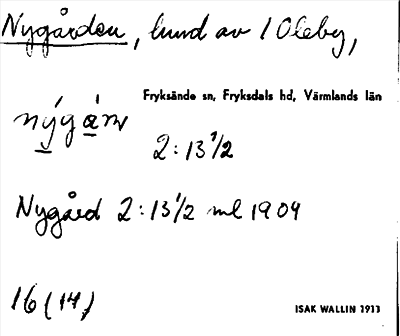 Nygården, lund av 1 Oleby,
Fryksände sn, Fryksdals hd, Värmlands län
nýgán
2:13 1/2
Nygård 2:13 1/2 ml 1909
16 (14)
ISAK WALLIN 1911